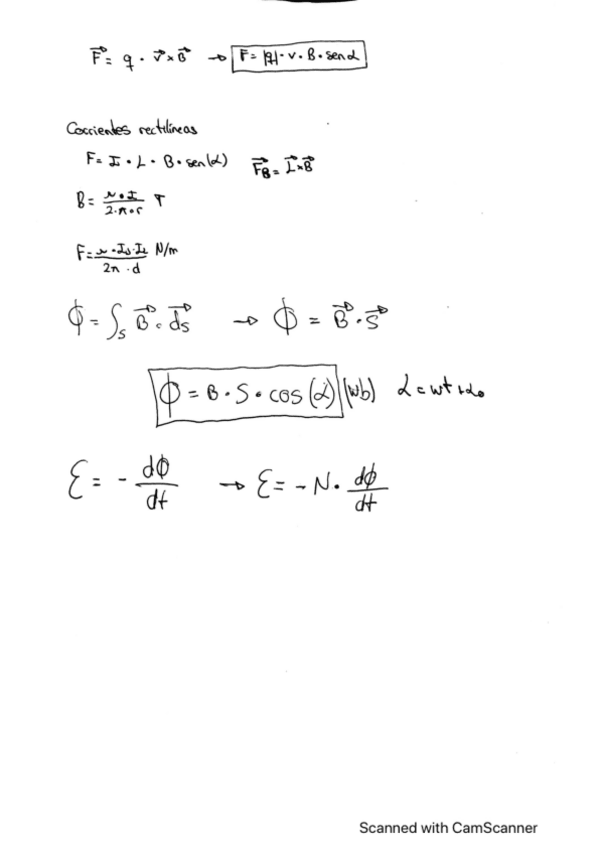 F⃗ = q · v⃗ × B⃗ → F = |q| · v · B · sen α
Corrientes rectilíneas
F = I · L · B · sen(α) F⃗_B = I⃗ × B⃗
B = μ · I / 2 · π · r T
F = μ · I₁ · I₂ / 2π · d N/m
ϕ = ∫_S B⃗ · ds⃗ → ϕ = B⃗ · S⃗
ϕ = B · S · cos(α) (wb) α = wt + α₀
Ɛ = - dϕ/dt → Ɛ = - N · dϕ/dt
Scanned with CamScanner